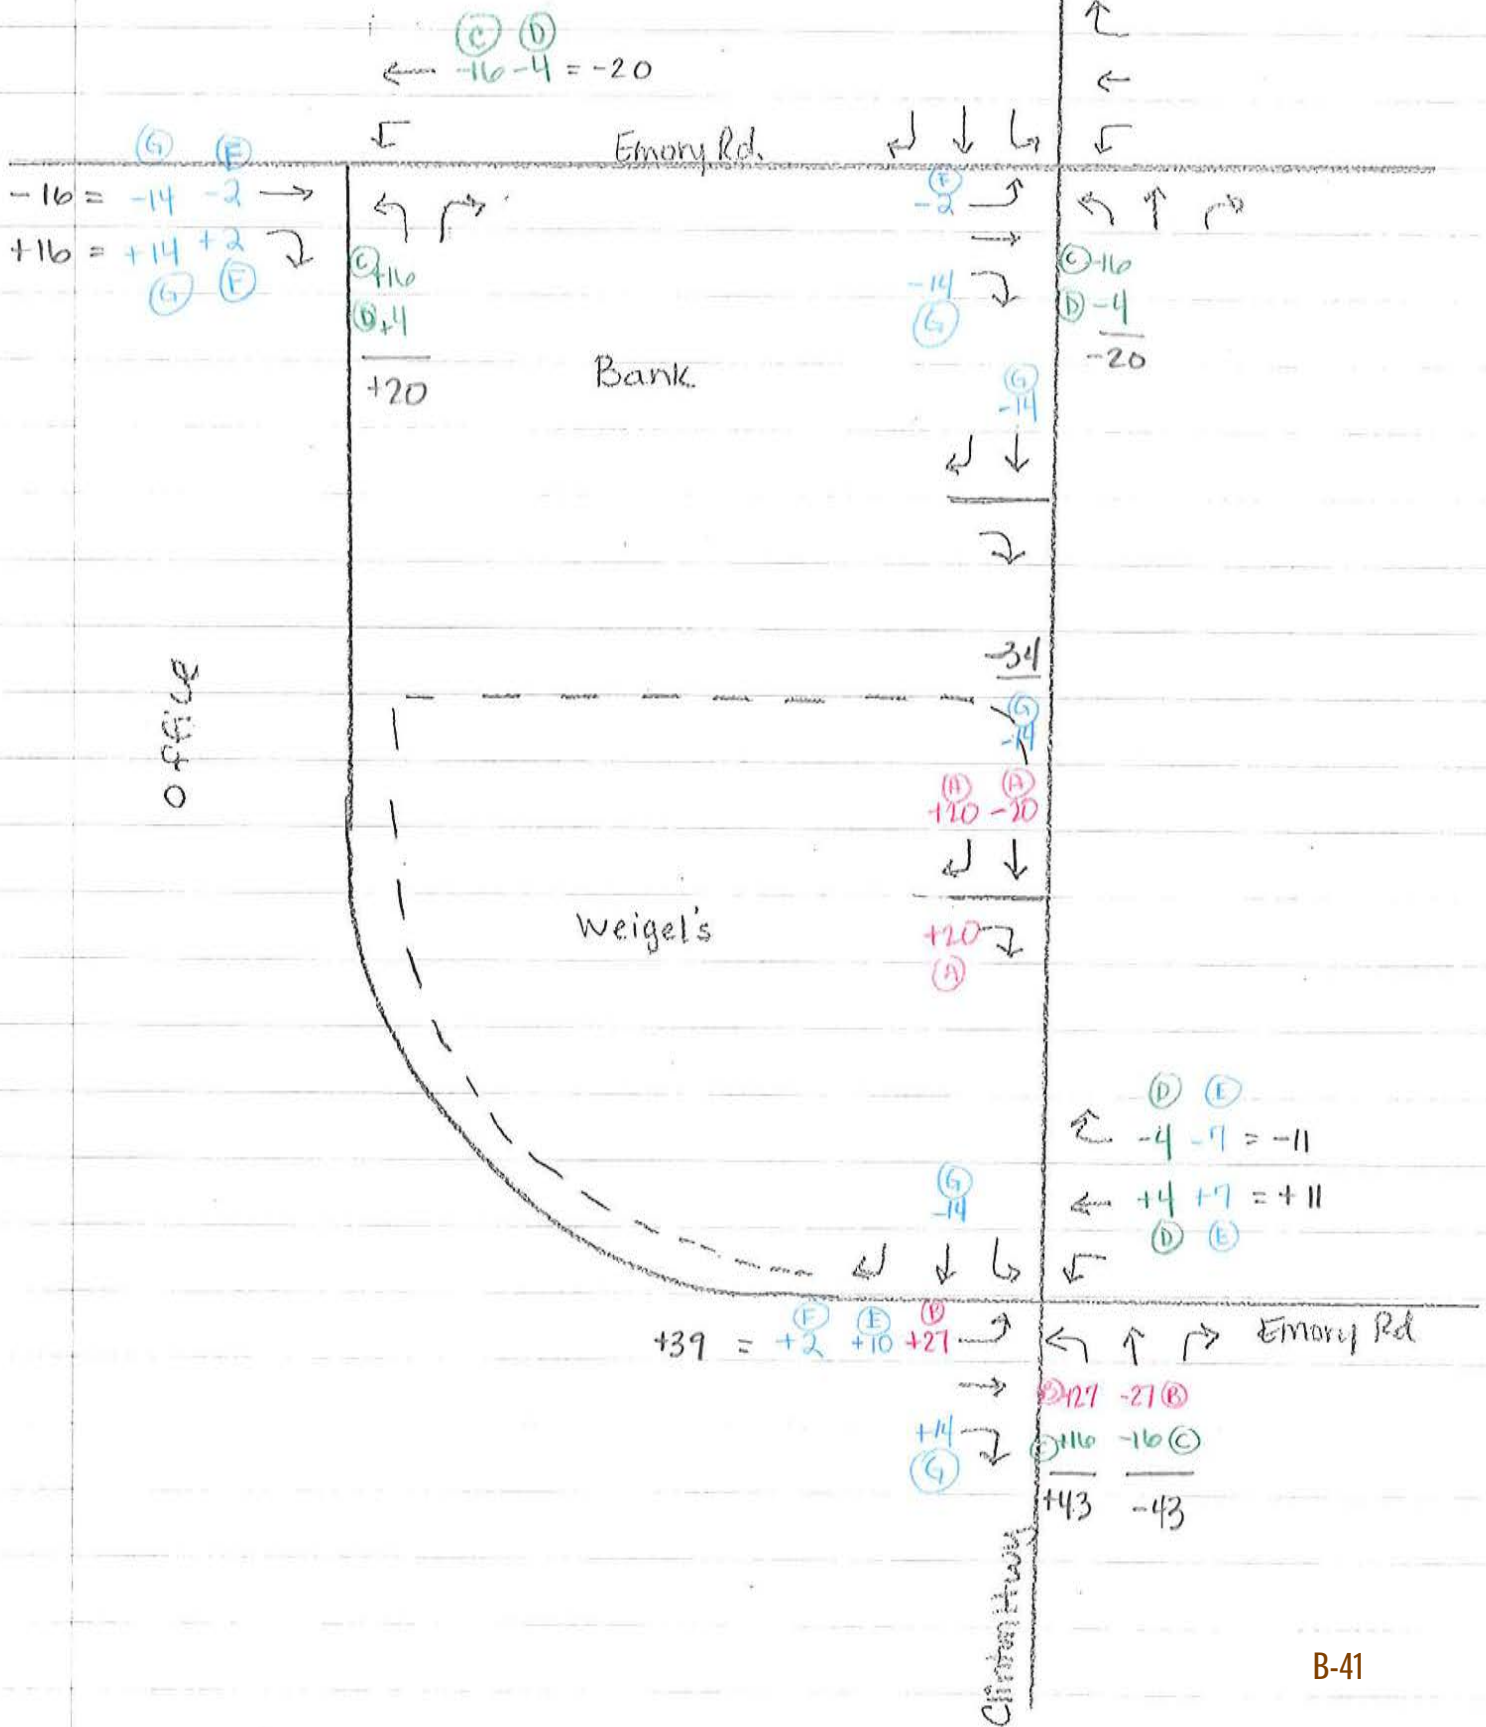 C D
-16 -4 = -20
Emory Rd.
G F
-16 = -14 -2
+16 = +14 +2
G F
F
-2
-14
G
C +16
D +4
+20
C -16
D -4
-20
Bank
G
-14
office
-34
G
-14
A A
+20 -20
Weigel's
+20
A
D E
-4 -7 = -11
+4 +7 = +11
D E
G
-14
F E B
+39 = +2 +10 +27
Emory Rd
+14
G
B +27 -27 B
C +16 -16 C
+43 -43
Clinton Hwy
B-41